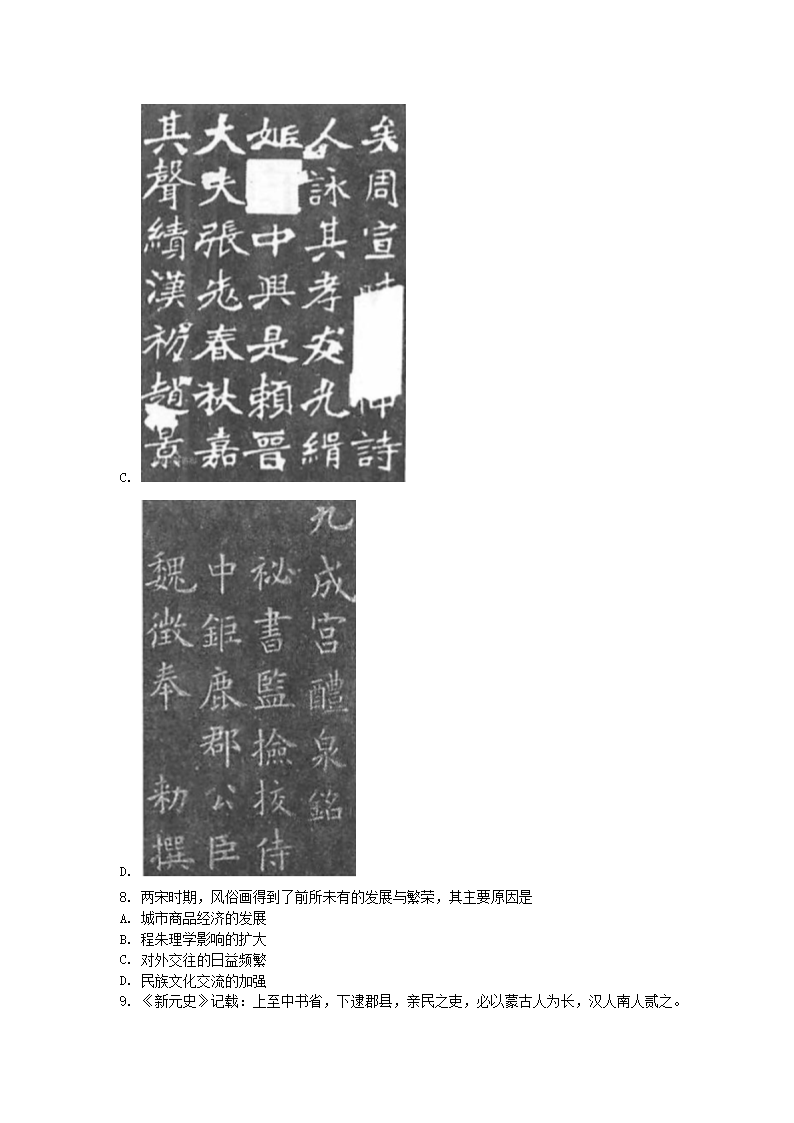 矣周宣詩
人詠其孝友光緝
姬中興是賴晉
大夫張老春秋嘉
其聲績漢初趙景
C.
九成宮醴泉銘
祕書監撿挍侍
中鉅鹿郡公臣
魏徵奉 勅撰
D.
8. 两宋时期，风俗画得到了前所未有的发展与繁荣，其主要原因是
A. 城市商品经济的发展
B. 程朱理学影响的扩大
C. 对外交往的日益频繁
D. 民族文化交流的加强
9. 《新元史》记载：上至中书省，下逮郡县，亲民之吏，必以蒙古人为长，汉人南人贰之。